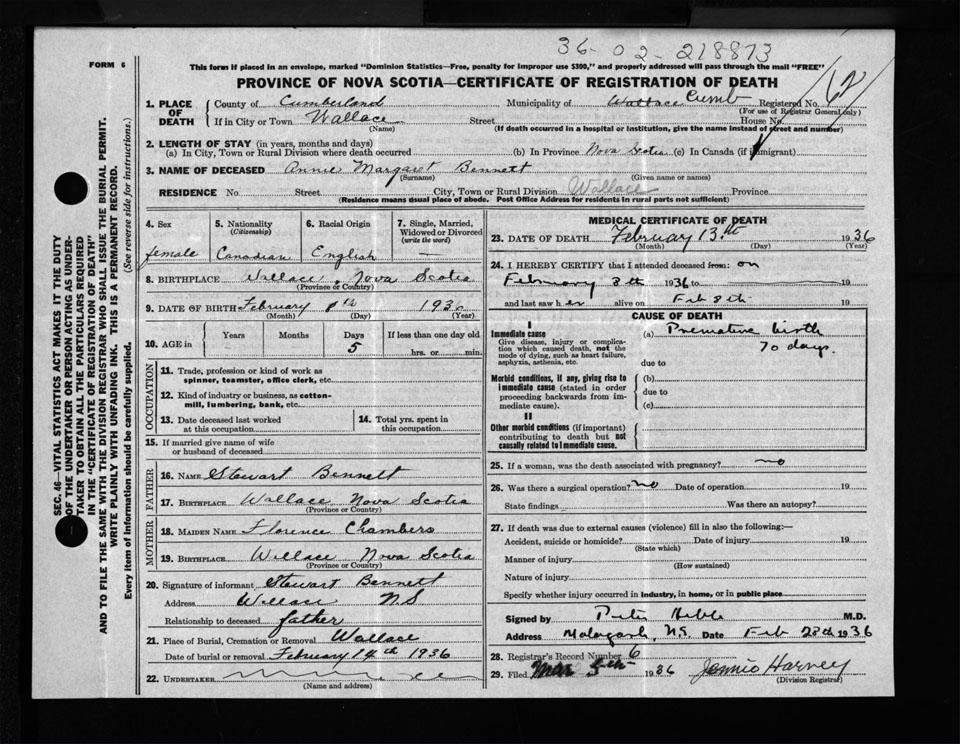 36-02-218873
FORM 6
This form if placed in an envelope, marked "Dominion Statistics—Free, penalty for improper use $300," and properly addressed will pass through the mail "FREE"
PROVINCE OF NOVA SCOTIA—CERTIFICATE OF REGISTRATION OF DEATH
62
1. PLACE OF DEATH
County of Cumberland Municipality of Wallace Cumb Registered No.
(For use of Registrar General only)
If in City or Town Wallace Street House No
(Name) (If death occurred in a hospital or institution, give the name instead of street and number)
2. LENGTH OF STAY (in years, months and days)
(a) In City, Town or Rural Division where death occurred (b) In Province Nova Scotia (c) In Canada (if immigrant)
3. NAME OF DECEASED Annie Margaret Bennett
(Surname) (Given name or names)
RESIDENCE No Street City, Town or Rural Division Wallace Province
(Residence means usual place of abode. Post Office Address for residents in rural parts not sufficient)
4. Sex 5. Nationality (Citizenship) 6. Racial Origin 7. Single, Married, Widowed or Divorced (write the word)
female Canadian English —
8. BIRTHPLACE Wallace, Nova Scotia
(Province or Country)
9. DATE OF BIRTH February 8th 1936
(Month) (Day) (Year)
10. AGE in Years Months Days 5 If less than one day old hrs. or min.
OCCUPATION
11. Trade, profession or kind of work as spinner, teamster, office clerk, etc.
12. Kind of industry or business, as cotton-mill, lumbering, bank, etc.
13. Date deceased last worked at this occupation 14. Total yrs. spent in this occupation
15. If married give name of wife or husband of deceased
FATHER
16. NAME Stewart Bennett
17. BIRTHPLACE Wallace Nova Scotia
(Province or Country)
MOTHER
18. MAIDEN NAME Florence Chambers
19. BIRTHPLACE Wallace Nova Scotia
(Province or Country)
20. Signature of informant Stewart Bennett
Address Wallace N S
Relationship to deceased father
21. Place of Burial, Cremation or Removal Wallace
Date of burial or removal February 14th 1936
22. UNDERTAKER
(Name and address)
MEDICAL CERTIFICATE OF DEATH
23. DATE OF DEATH February 13th 1936
(Month) (Day) (Year)
24. I HEREBY CERTIFY that I attended deceased from: on
February 8th 1936 to 19
and last saw her alive on Feb 8th 19
CAUSE OF DEATH
I
Immediate cause (a) Premature birth
Give disease, injury or complication which caused death, not the mode of dying, such as heart failure, asphyxia, asthenia, etc.
70 days.
due to
Morbid conditions, if any, giving rise to immediate cause (stated in order proceeding backwards from immediate cause).
(b)
due to
(c)
II
Other morbid conditions (if important) contributing to death but not causally related to immediate cause.
25. If a woman, was the death associated with pregnancy? no
26. Was there a surgical operation? no Date of operation 19
State findings Was there an autopsy?
27. If death was due to external causes (violence) fill in also the following:—
Accident, suicide or homicide? Date of injury 19
(State which)
Manner of injury
(How sustained)
Nature of injury
Specify whether injury occurred in industry, in home, or in public place
Signed by M.D.
Address Malagash, N.S. Date Feb 28th 1936
28. Registrar's Record Number 6
29. Filed Mar 5th 1936 Jennie Harvey
(Division Registrar)
SEC. 46—VITAL STATISTICS ACT MAKES IT THE DUTY
OF THE UNDERTAKER OR PERSON ACTING AS UNDER-
TAKER TO OBTAIN ALL THE PARTICULARS REQUIRED
IN THE "CERTIFICATE OF REGISTRATION OF DEATH"
AND TO FILE THE SAME WITH THE DIVISION REGISTRAR WHO SHALL ISSUE THE BURIAL PERMIT.
WRITE PLAINLY WITH UNFADING INK. THIS IS A PERMANENT RECORD.
Every item of information should be carefully supplied. (See reverse side for instructions.)